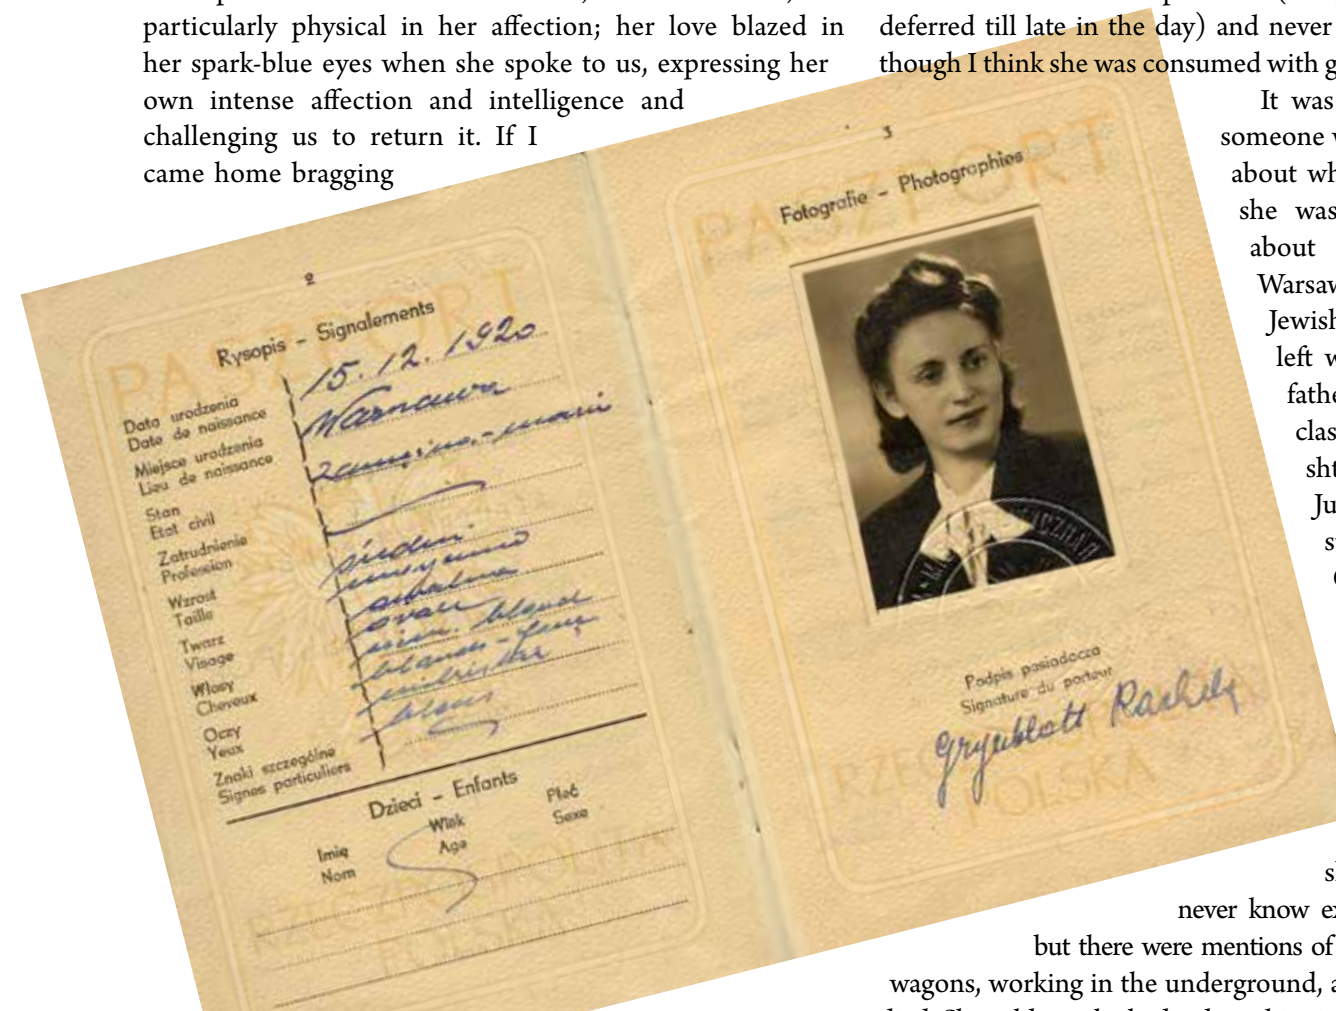 particularly physical in her affection; her love blazed in
her spark-blue eyes when she spoke to us, expressing her
own intense affection and intelligence and
challenging us to return it. If I
came home bragging
deferred till late in the day) and never
though I think she was consumed with g
It was
someone w
about wh
she was
about
Warsaw
Jewish
left w
fathe
clas
sht
Ju
never know ex
but there were mentions of
wagons, working in the underground, a
2
PASZPORT
Rysopis – Signalements
Data urodzenia
Date de naissance
15.12.1920
Miejsce urodzenia
Lieu de naissance
Warszawa
Stan
Etat civil
Zatrudnienie
Profession
Wzrost
Taille
Twarz
Visage
owal
Włosy
Cheveux
blond
Oczy
Yeux
Znaki szczególne
Signes particuliers
Dzieci – Enfants
Imię
Nom
Wiek
Age
Płeć
Sexe
RZECZPOSPOLITA
POLSKA
3
PASZPORT
Fotografie – Photographies
Podpis posiadacza
Signature du porteur
Grynblatt Rachela
POLSKA